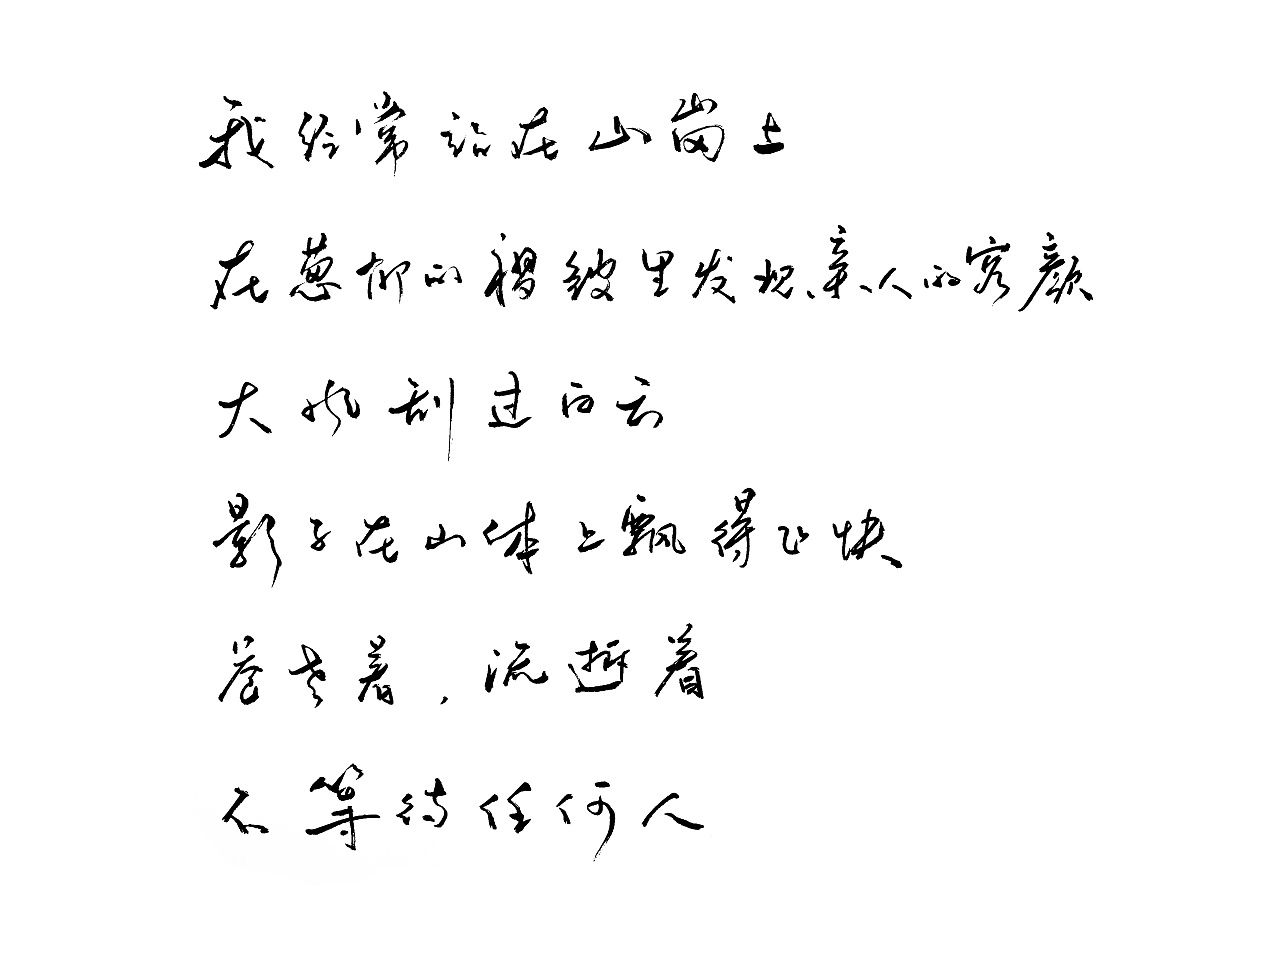 我经常站在山岗上
在葱郁的褶皱里发现亲人的容颜
大风刮过白云
影子在山体上飘得飞快
苍老着，流逝着
不等待任何人